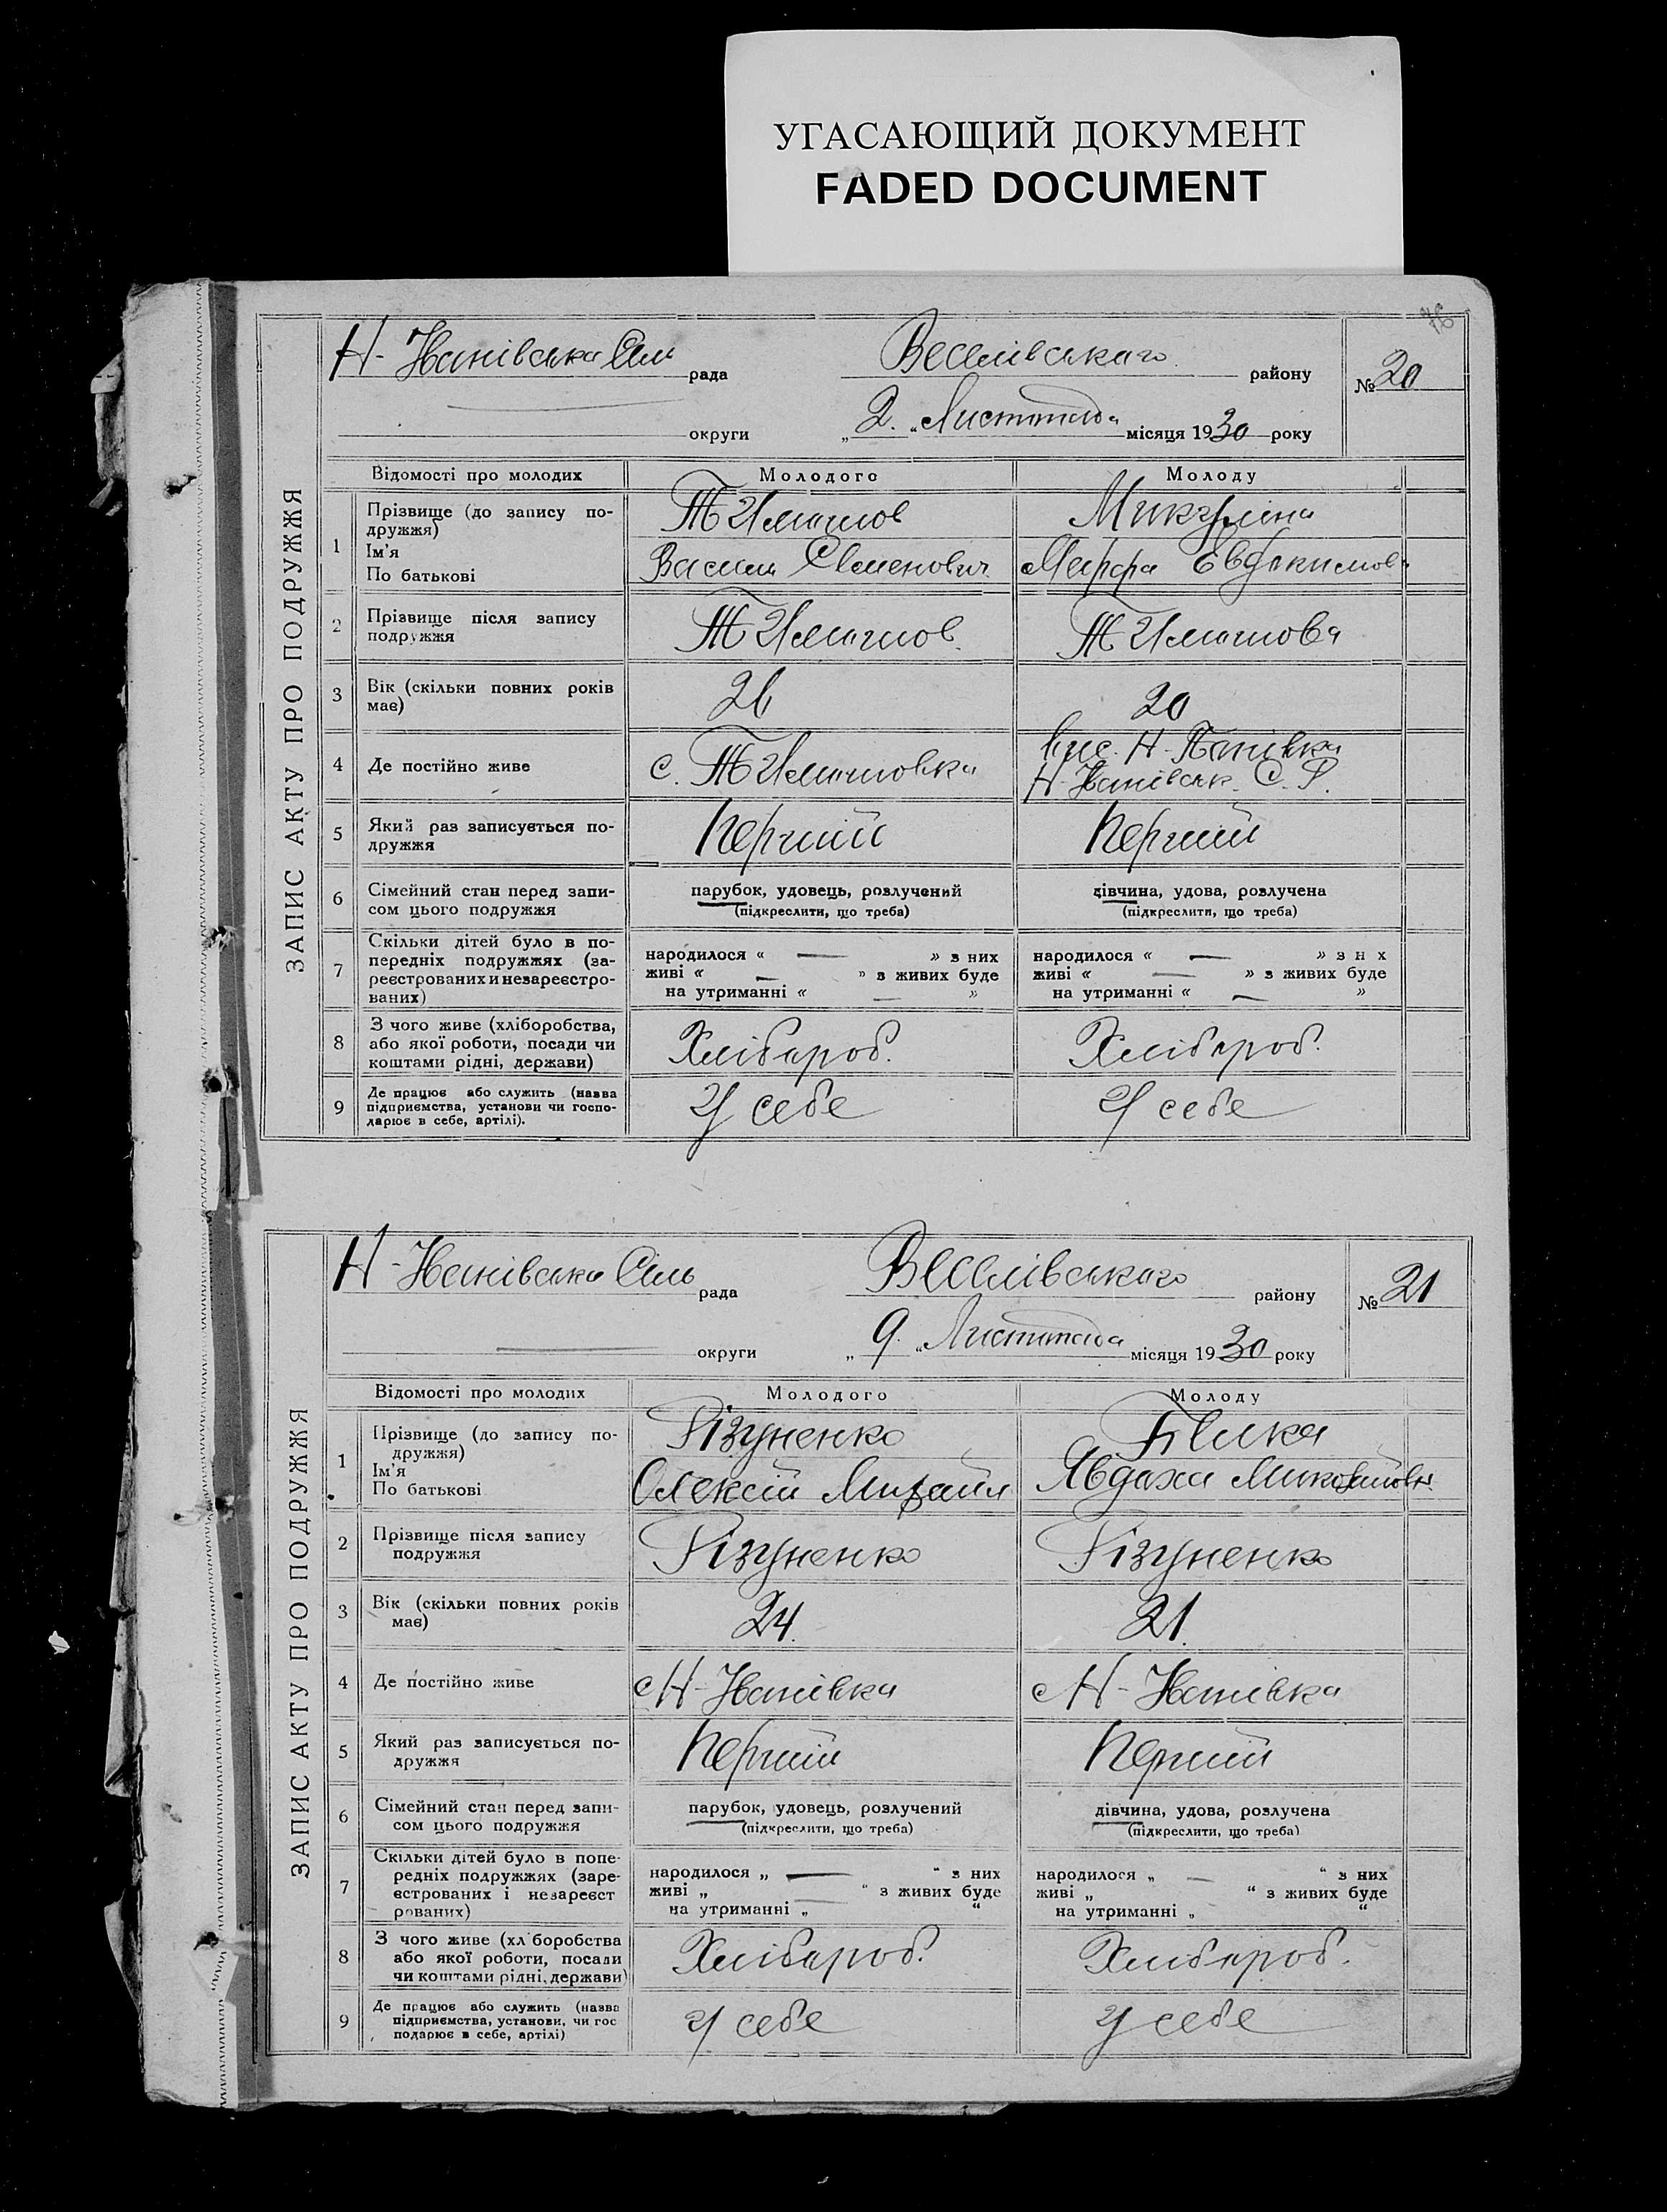 УГАСАЮЩИЙ ДОКУМЕНТ
FADED DOCUMENT
76
ЗАПИС АКТУ ПРО ПОДРУЖЖЯ
Н-Іванівська Сіль рада
Веселівського району
№ 20
округи
„ 2. “ Листопада місяця 1930 року
Відомості про молодих
Молодого
Молоду
1
Прізвище (до запису по-
дружжя)
Ім'я
По батькові
Микуліна
Василь Семенович
Марфа Евдокимов
2
Прізвище після запису
подружжя
3
Вік (скільки повних років
має)
26
20
4
Де постійно живе
с.
вис. Н-
Н-Іванівськ. С. Р.
5
Який раз записується по-
дружжя
Перший
Перший
6
Сімейний стан перед запи-
сом цього подружжя
парубок, удовець, розлучений
(підкреслити, що треба)
дівчина, удова, розлучена
(підкреслити, що треба)
7
Скільки дітей було в по-
передніх подружжях (за-
реєстрованих и незареєстро-
ваних)
народилося « — » з них
живі « — » з живих буде
на утриманні « — »
народилося « — » з н х
живі « — » з живих буде
на утриманні « — »
8
З чого живе (хліборобства,
або якої роботи, посади чи
коштами рідні, держави)
Хлібароб.
Хлібароб.
9
Де працює або служить (назва
підприємства, установи чи госпо-
дарює в себе, артілі).
У себе
У себе
ЗАПИС АКТУ ПРО ПОДРУЖЖЯ
Н-Іванівська Сіль рада
Веселівського району
№ 21
округи
„ 9. “ Листопада місяця 1930 року
Відомості про молодих
Молодого
Молоду
1
Прізвище (до запису по-
дружжя)
Ім'я
По батькові
Різуненко
Олексій Михайл
Явдаха Миколаївн
2
Прізвище після запису
подружжя
Різуненко
Різуненко
3
Вік (скільки повних років
має)
24.
21.
4
Де постійно живе
с Н-Іванівка
с Н-Іванівка
5
Який раз записується по-
дружжя
Перший
Перший
6
Сімейний стан перед запи-
сом цього подружжя
парубок, удовець, розлучений
(підкреслити, що треба)
дівчина, удова, розлучена
(підкреслити, що треба)
7
Скільки дітей було в попе-
редніх подружжях (заре-
єстрованих і незареєст
рованих)
народилося „ — “ з них
живі „ — “ з живих буде
на утриманні „ “
народилося „ — “ з них
живі „ “ з живих буде
на утриманні „ “
8
З чого живе (хл боробства
або якої роботи, посади
чи коштами рідні, держави)
Хлібароб.
Хлібароб.
9
Де працює або служить (назва
підприємства, установи, чи гос
подарює в себе, артілі)
У себе
У себе